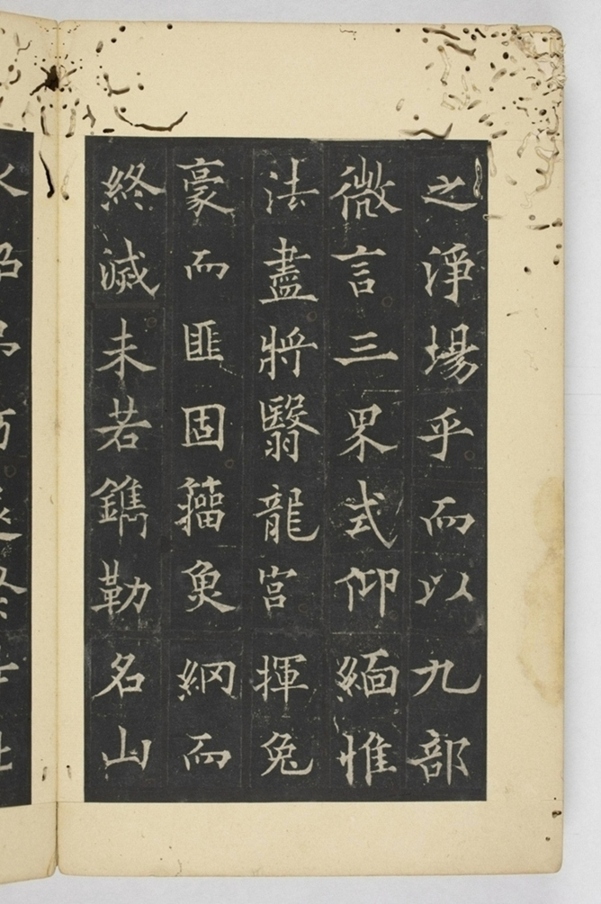 之淨場乎而以九部
微言三界式仰緬惟
法盡將翳龍宮揮兔
豪而匪固籀魚網而
終滅未若鐫勒名山